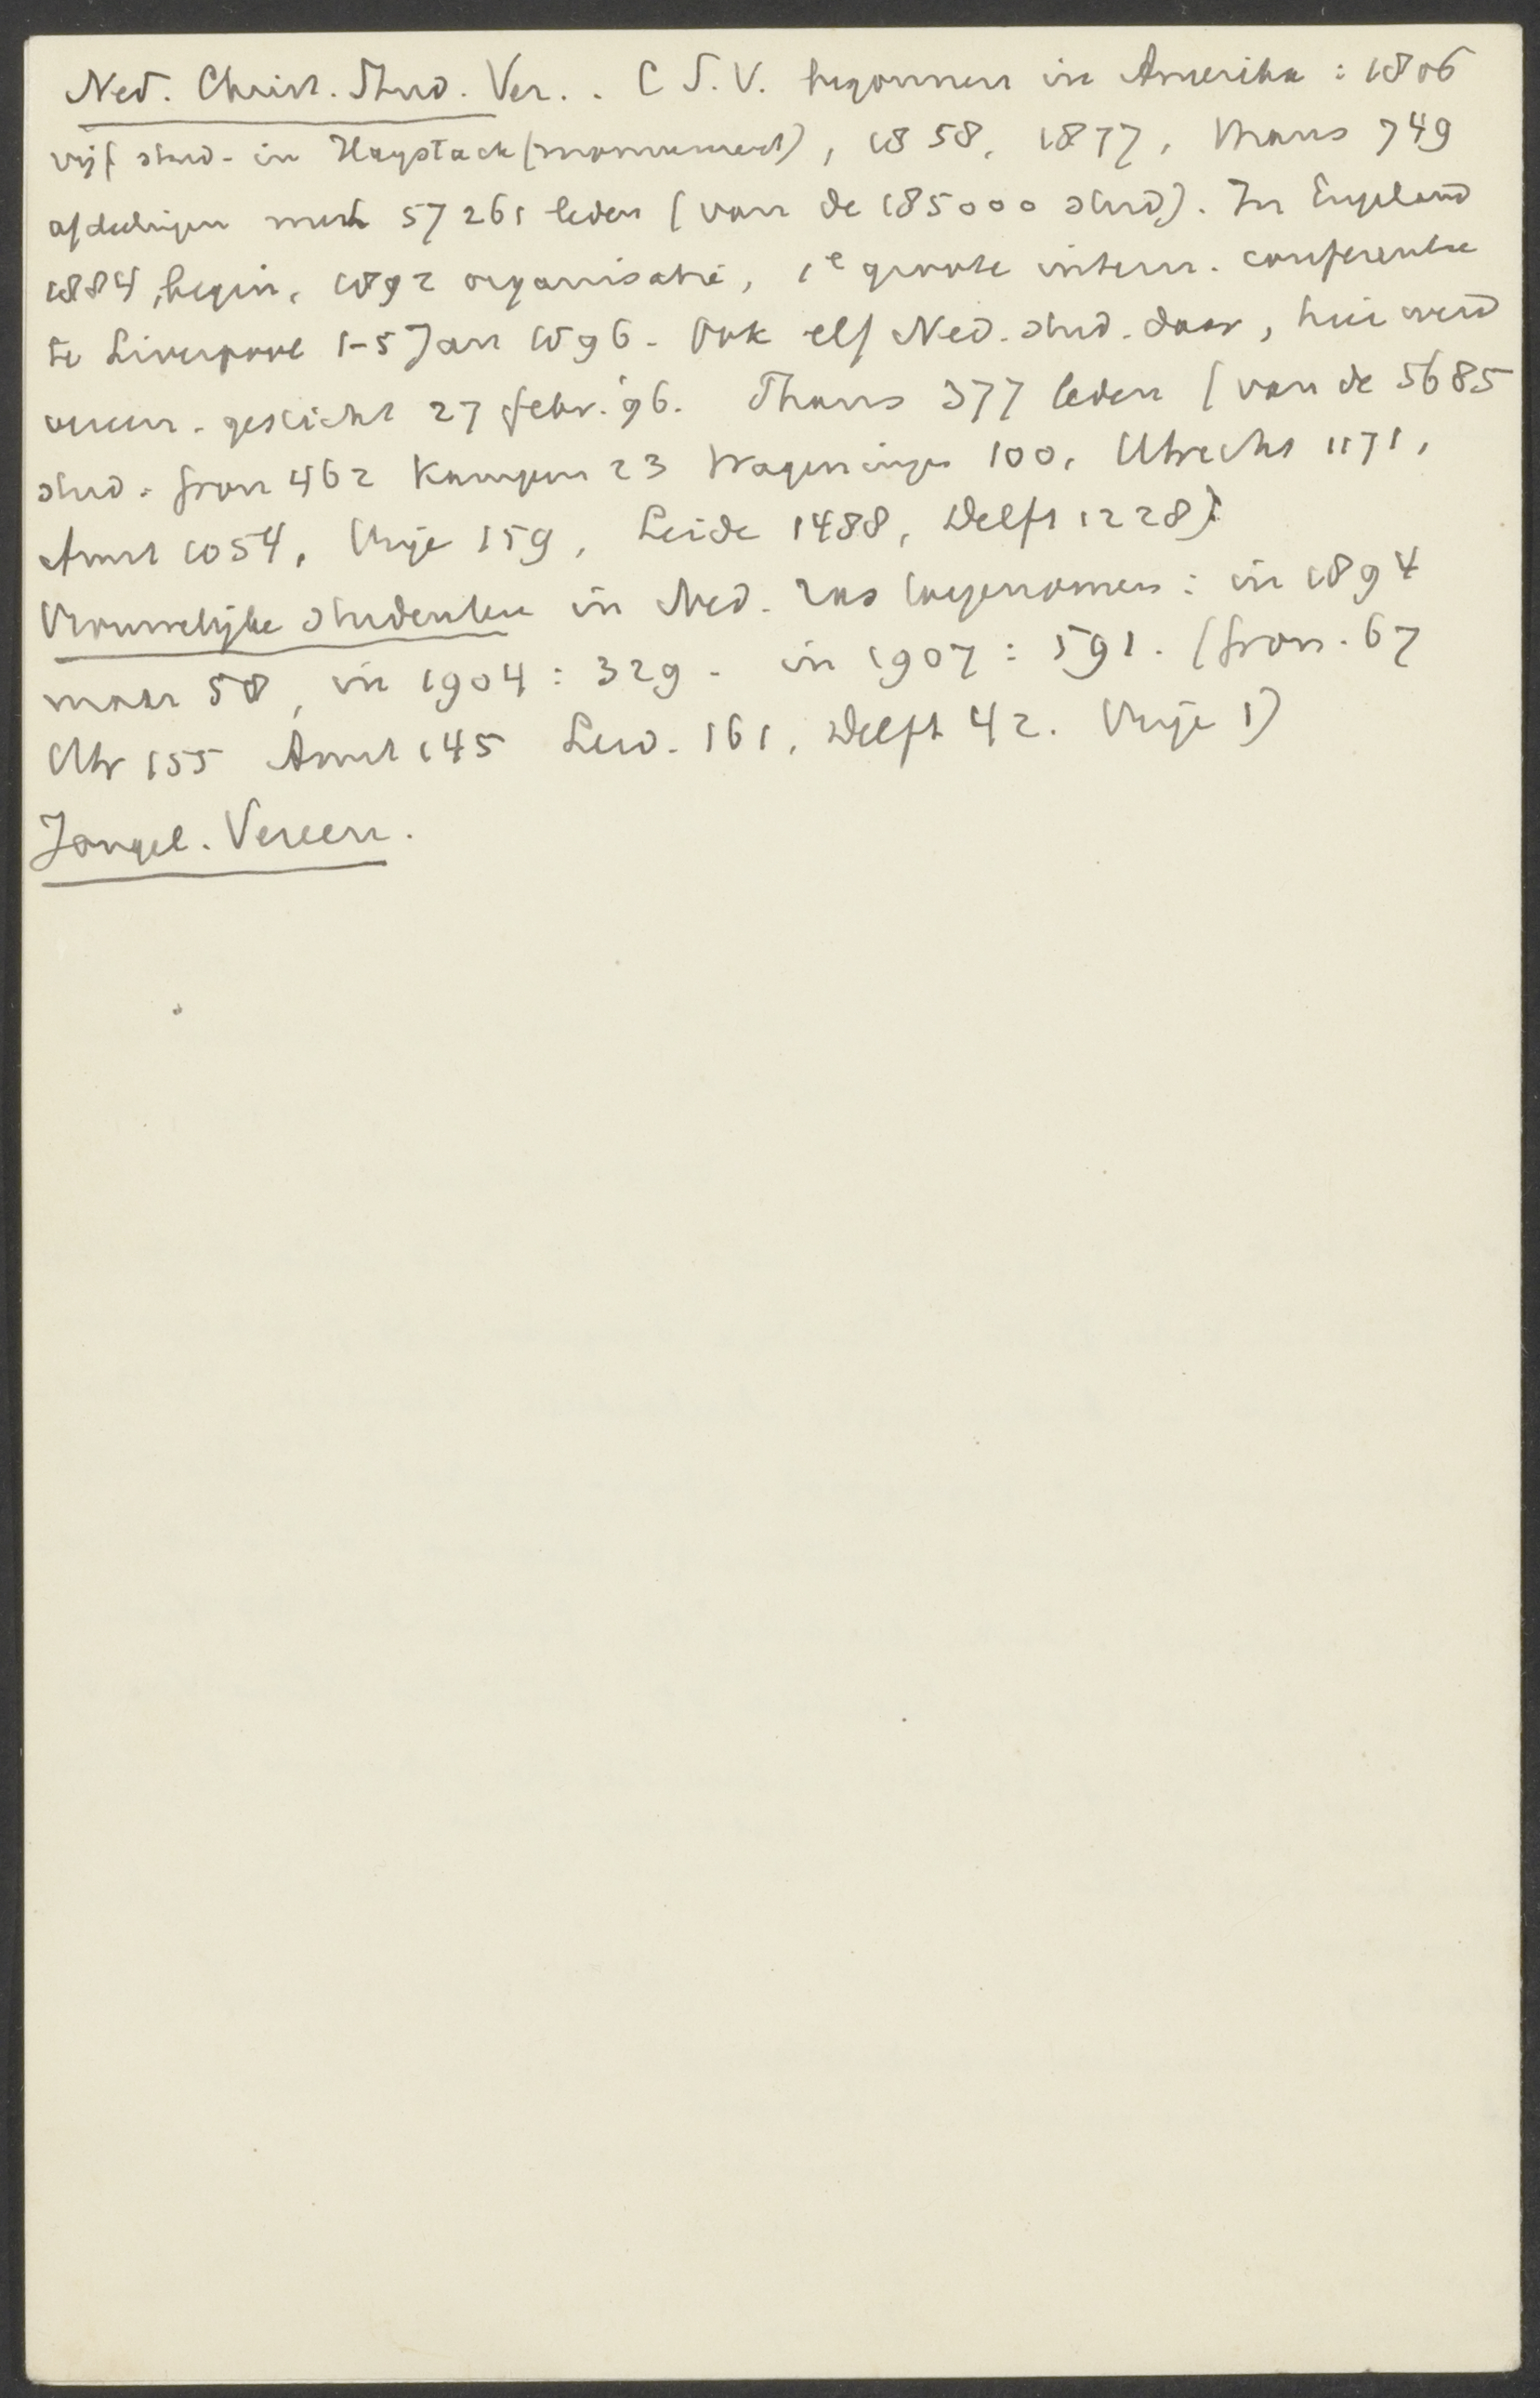 Ned. Christ. Stud. Ver.. C S.V. begonnen in Amerika : 1806
vijf stud. in Haystack (monument), 1858, 1877, thans 749
afdeelingen met 57261 leden (van de 185000 stud). In Engeland
1884, begin, 1892 organisatie, 1e groote intern. conferentie
te Liverpool 1-5 Jan 1896. Ook elf Ned. stud. daar, hier werd
vereen. gesticht 27 febr. '96. Thans 377 leden (van de 5685
stud. Gron 462 Kampen 23 Wageningen 100, Utrecht 1171,
Amst 1054, Vrije 159, Leide 1488, Delft 1228)
Vrouwelijke studenten in Ned. zas toegenomen : in 1894
maar 58, in 1904 : 329. in 1907 : 591. (Gron. 67
Utr 155 Amst 145 Leid. 161, Delft 42. Vrije 1)
Jongel. Vereen.